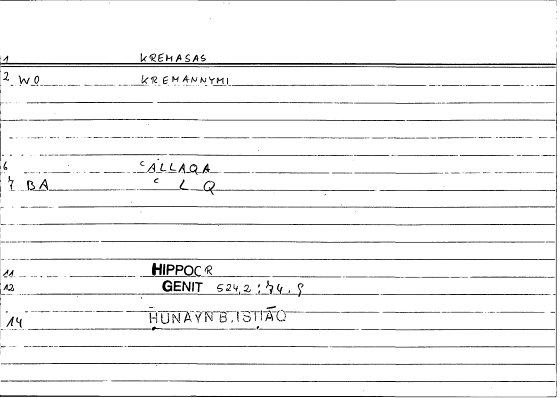 1 KREMASAS
2 WO KREMANNYMI
6 ᶜALLAQA
7 BA ᶜ L Q
11 HIPPOCR
12 GENIT 524,2 : 74. 9
14 ḤUNAYN B. ISḤĀQ